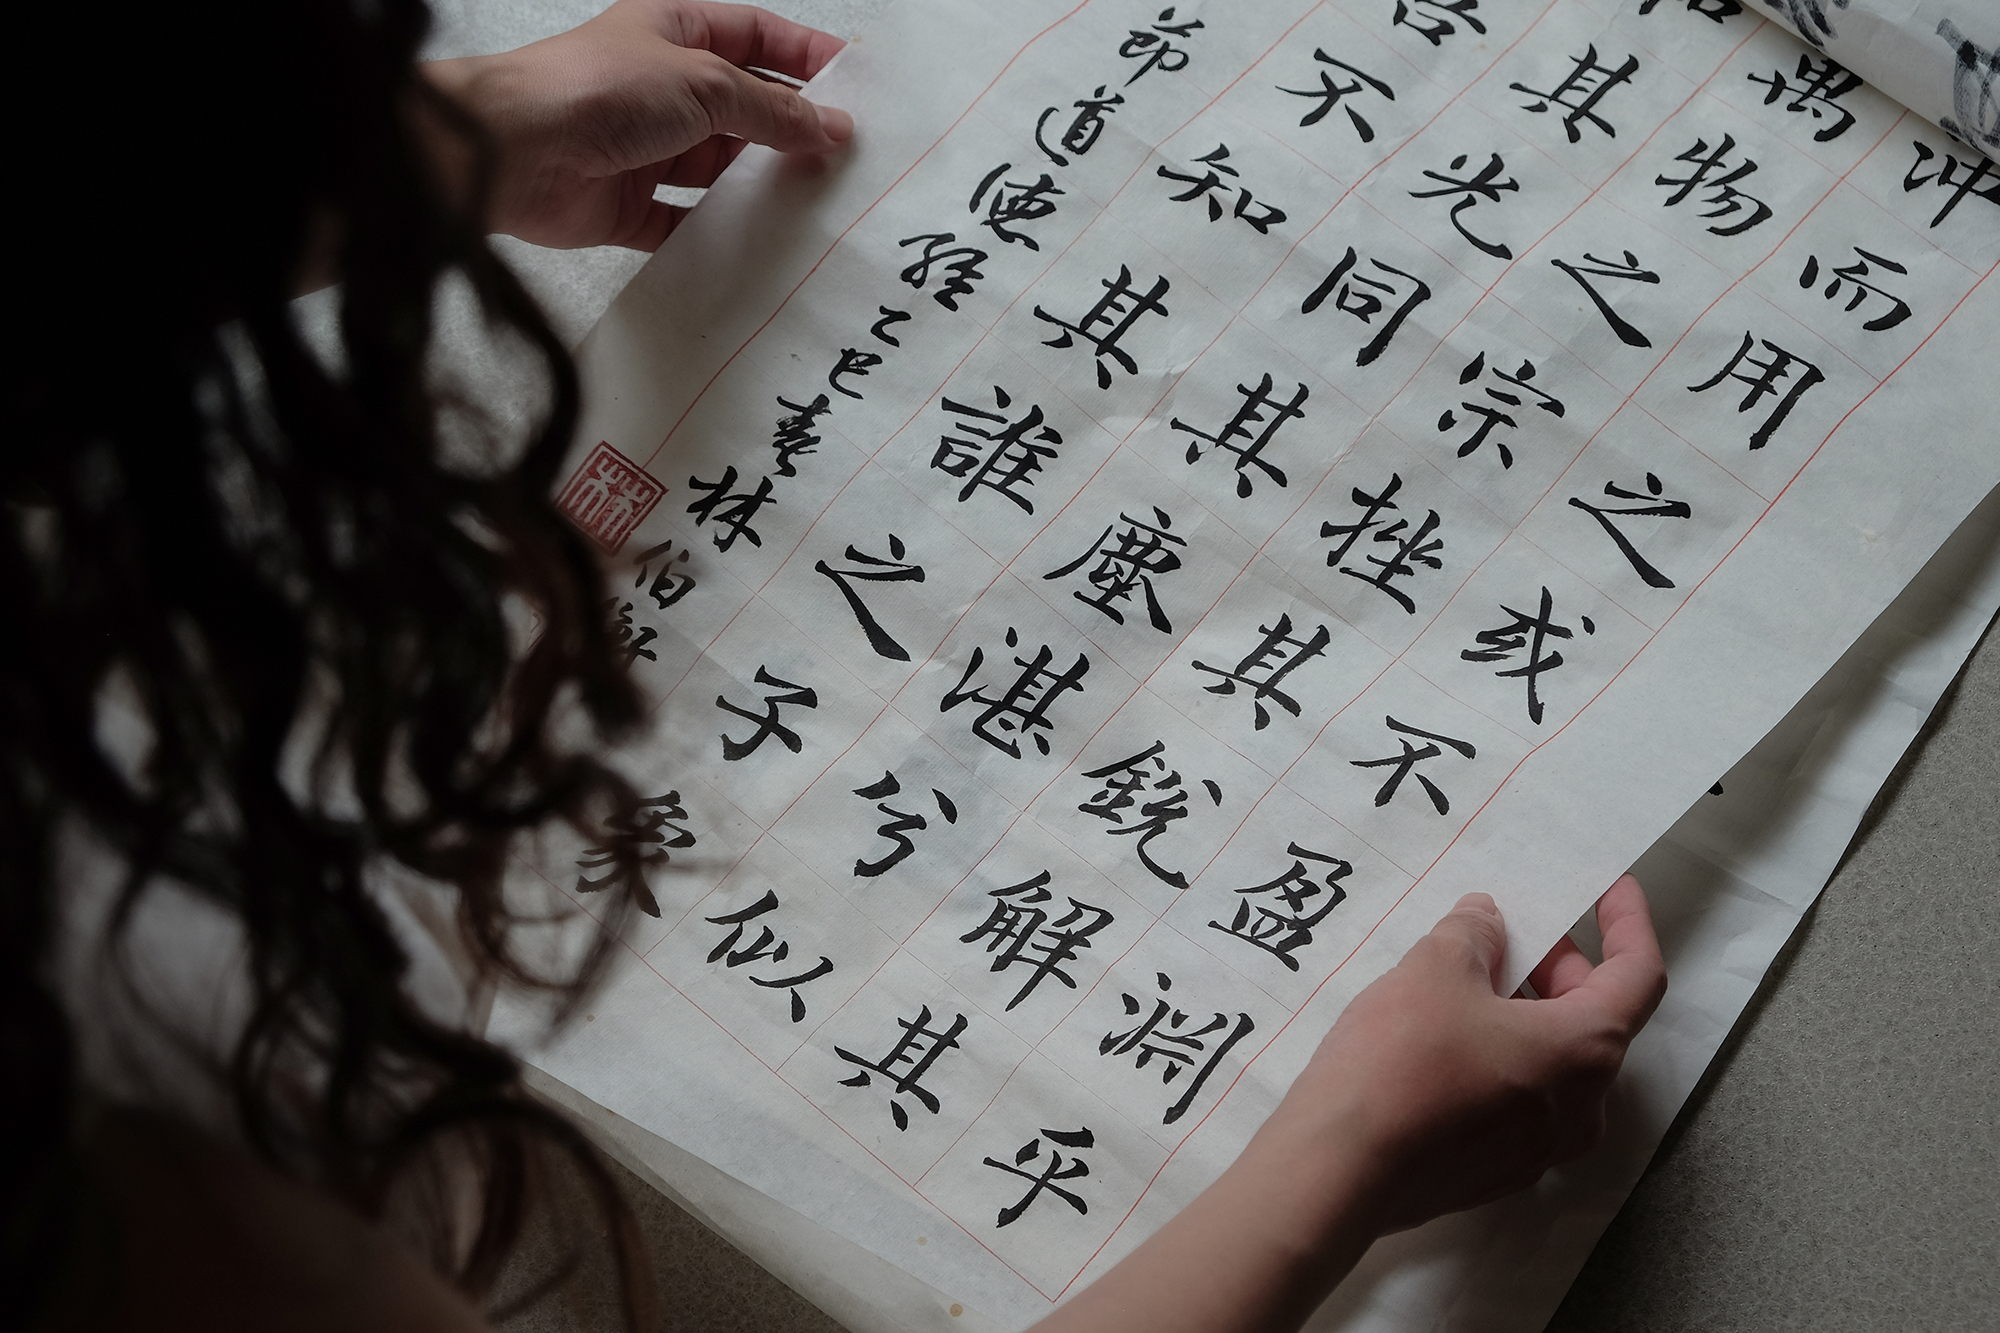 冲而用之或不盈淵乎
萬物之宗挫其銳解其
和其光同其塵湛兮似
吾不知其誰之子象
節道德經乙巳春林伯